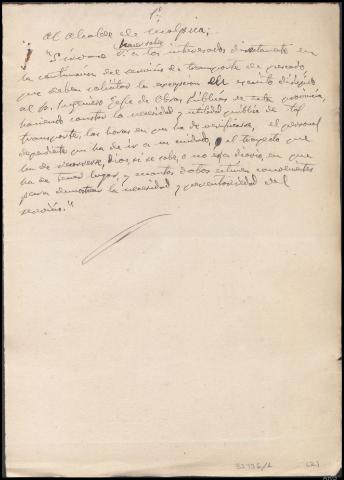 1º
Al Alcalde de Malpica:
hacer saber
"Sírvase a los interesados directamente en
la continuación del servicio de transporte de pescado
que deben solicitar la excepción del escrito dirigido
al Sr. Ingeniero Jefe de Obras Públicas de esta provincia,
haciendo constar la necesidad y utilidad pública de tal
transporte, las horas en que ha de verificarse, el personal
dependiente que ha de ir a su cuidado, el trayecto que
ha de recorrerse, días, si se sabe, o no es a diario, en que
ha de tener lugar, y cuantos datos estimen convenientes
para demostrar la necesidad y perentoriedad del
servicio."
32796/2 (2)